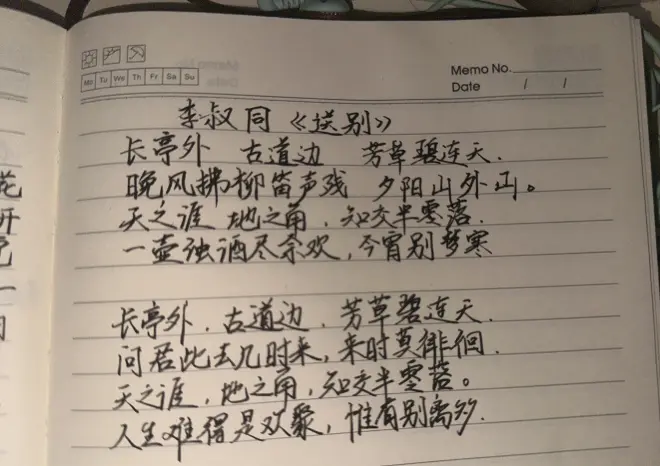 Memo No.
Date / /
Mo Tu We Th Fr Sa Su
李叔同《送别》
长亭外 古道边 芳草碧连天.
晚风拂柳笛声残 夕阳山外山。
天之涯 地之角,知交半零落.
一壶浊酒尽余欢,今宵别梦寒
长亭外.古道边.芳草碧连天.
问君此去几时来,来时莫徘徊.
天之涯,地之角,知交半零落。
人生难得是欢聚,惟有别离多.